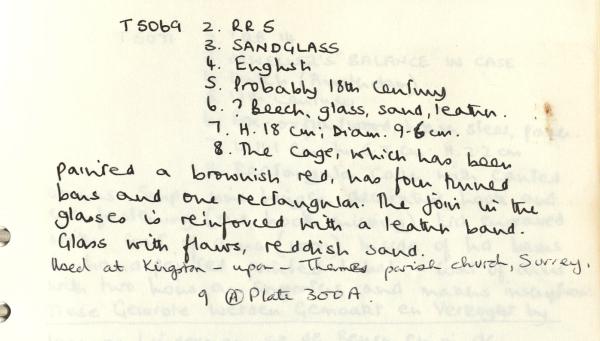 T5069 2. RR5
3. SANDGLASS
4. English
5. Probably 18th century
6. ? Beech, glass, sand, leather.
7. H. 18 cm; Diam. 9.6 cm.
8. The cage, which has been
painted a brownish red, has four turned
bars and one rectangular. The join in the
glasses is reinforced with a leather band.
Glass with flaws, reddish sand.
Used at Kingston-upon Thames parish church, Surrey.
9 Ⓐ Plate 300A.